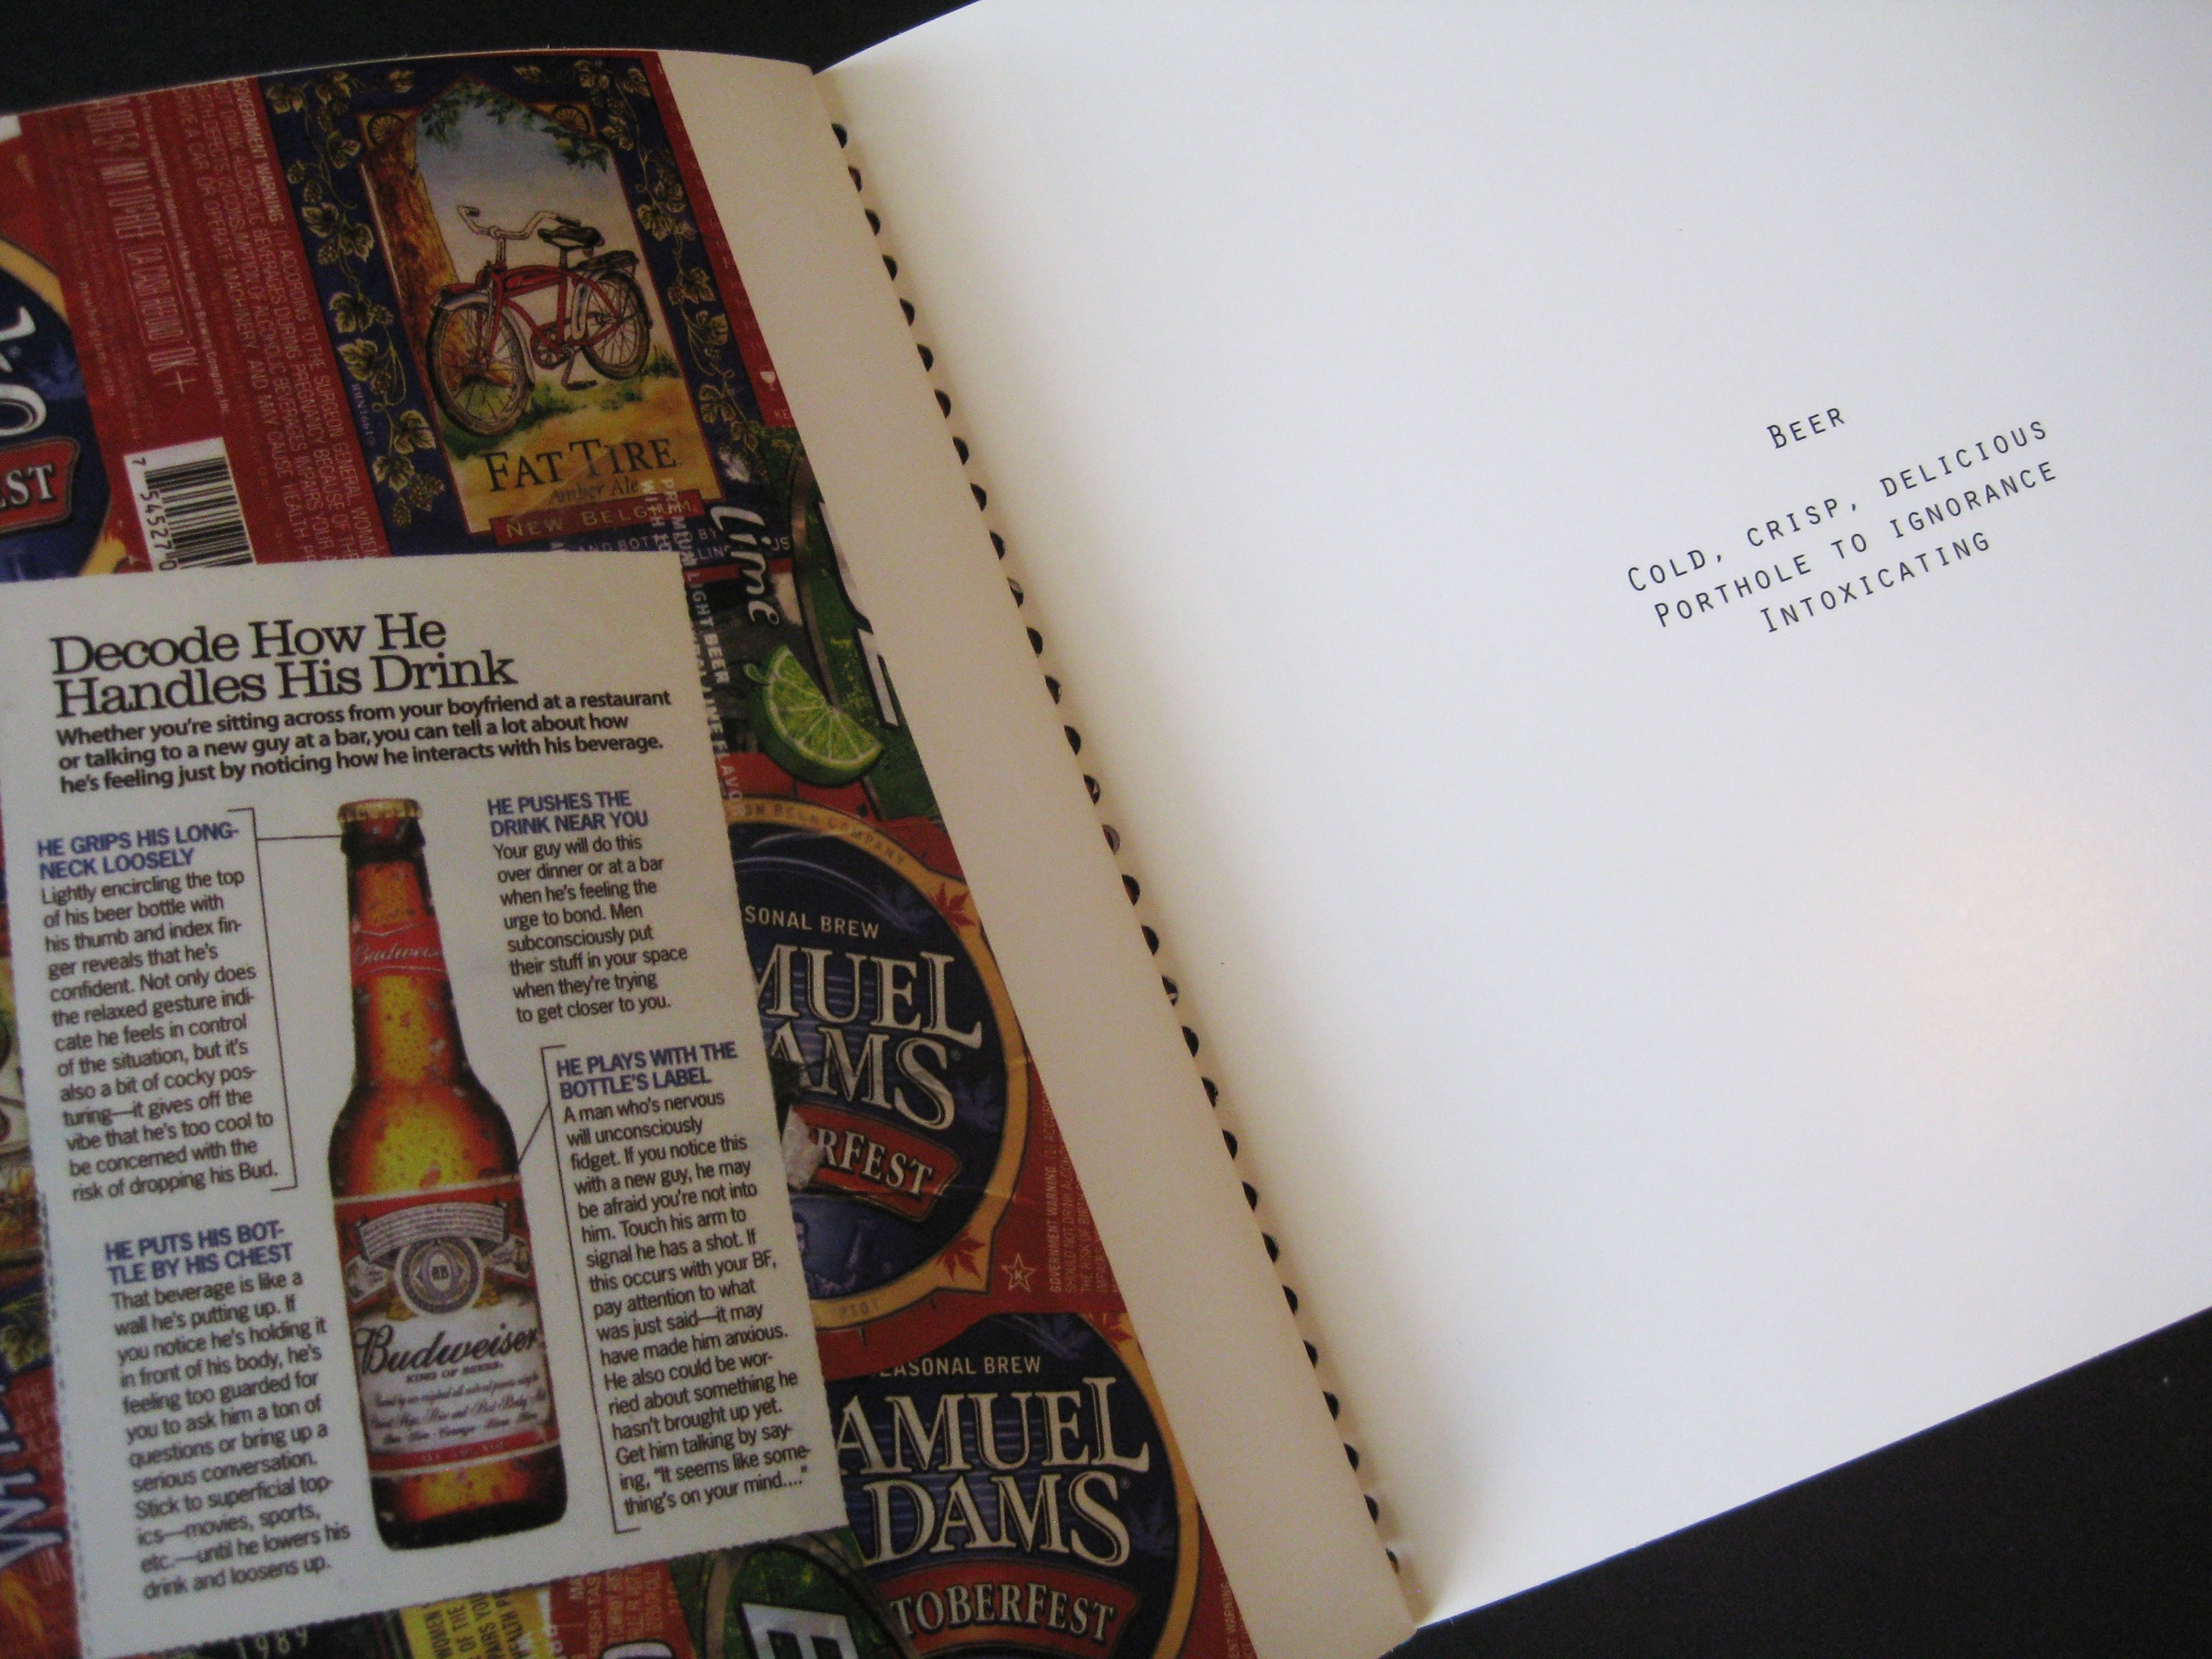 GOVERNMENT WARNING: (1) ACCORDING TO THE SURGEON GENERAL, WOMEN
7 54527 0
FAT TIRE
Amber Ale
NEW BELGIUM
Lime
PREMIUM LIGHT BEER
EST
Decode How He
Handles His Drink
Whether you're sitting across from your boyfriend at a restaurant
or talking to a new guy at a bar, you can tell a lot about how
he's feeling just by noticing how he interacts with his beverage.
HE GRIPS HIS LONG-
NECK LOOSELY
Lightly encircling the top
of his beer bottle with
his thumb and index fin-
ger reveals that he's
confident. Not only does
the relaxed gesture indi-
cate he feels in control
of the situation, but it's
also a bit of cocky pos-
turing—it gives off the
vibe that he's too cool to
be concerned with the
risk of dropping his Bud.
HE PUTS HIS BOT-
TLE BY HIS CHEST
That beverage is like a
wall he's putting up. If
you notice he's holding it
in front of his body, he's
feeling too guarded for
you to ask him a ton of
questions or bring up a
serious conversation.
Stick to superficial top-
ics—movies, sports,
etc.—until he lowers his
drink and loosens up.
Budweiser
Budweiser
KING OF BEERS
HE PUSHES THE
DRINK NEAR YOU
Your guy will do this
over dinner or at a bar
when he's feeling the
urge to bond. Men
subconsciously put
their stuff in your space
when they're trying
to get closer to you.
HE PLAYS WITH THE
BOTTLE'S LABEL
A man who's nervous
will unconsciously
fidget. If you notice this
with a new guy, he may
be afraid you're not into
him. Touch his arm to
signal he has a shot. If
this occurs with your BF,
pay attention to what
was just said—it may
have made him anxious.
He also could be wor-
ried about something he
hasn't brought up yet.
Get him talking by say-
ing, "It seems like some-
thing's on your mind...."
SONAL BREW
MUEL
AMS
RFEST
GOVERNMENT WARNING
EASONAL BREW
AMUEL
DAMS
TOBERFEST
1989
BEER
COLD, CRISP, DELICIOUS
PORTHOLE TO IGNORANCE
INTOXICATING